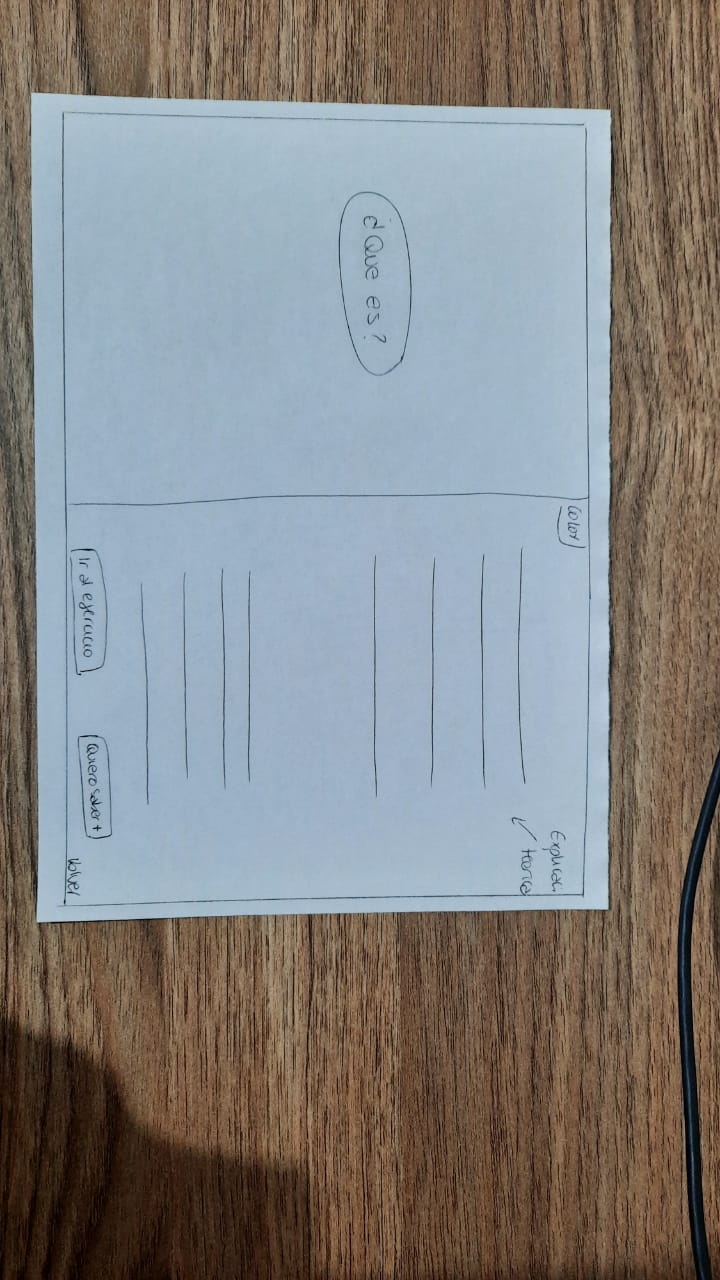 Color
Explicaci
teorica
¿Que es?
Ir al ejercicio
Quiero saber +
Volver